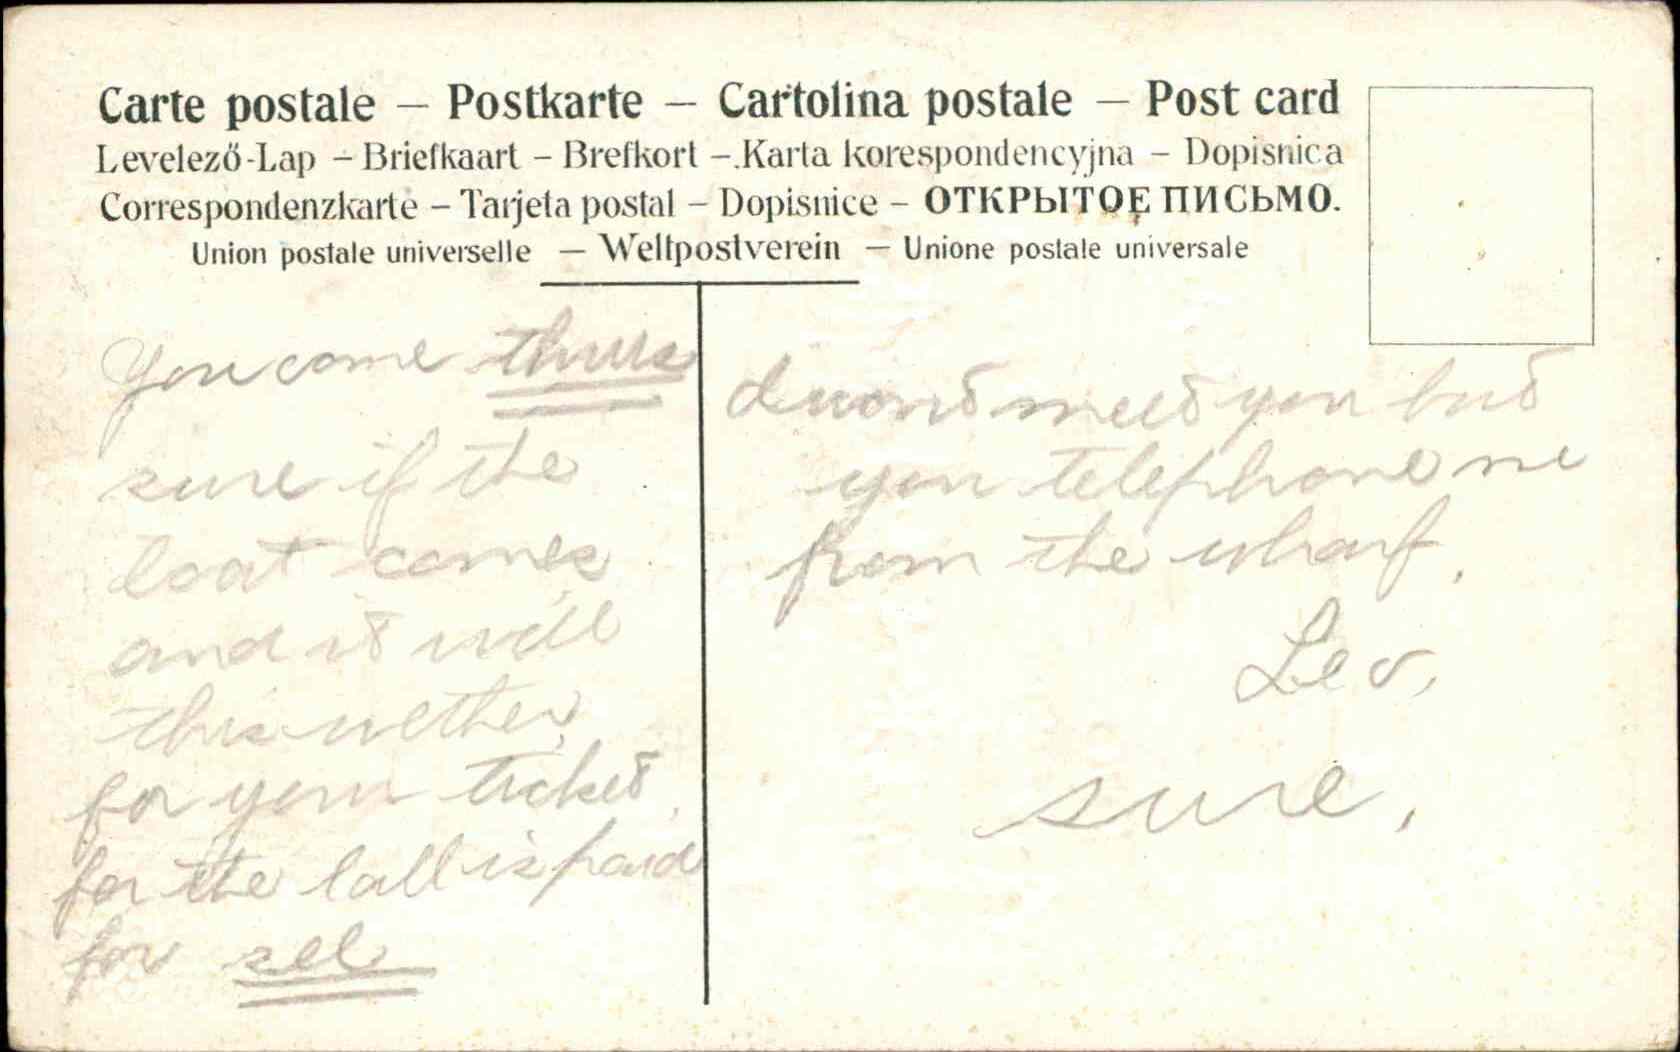 Carte postale – Postkarte – Cartolina postale – Post card
Levelező-Lap – Briefkaart – Brefkort – Karta korespondencyjna – Dopisnica
Correspondenzkarte – Tarjeta postal – Dopisnice – ОТКРЫТОЕ ПИСЬМО.
Union postale universelle – Weltpostverein – Unione postale universale
You come thurs
sure if the
boat comes
and it will
this wether
for your ticket
for the ball is paid
for sel
I wont meet you but
you telephone me
from the wharf.
Leo,
sure,